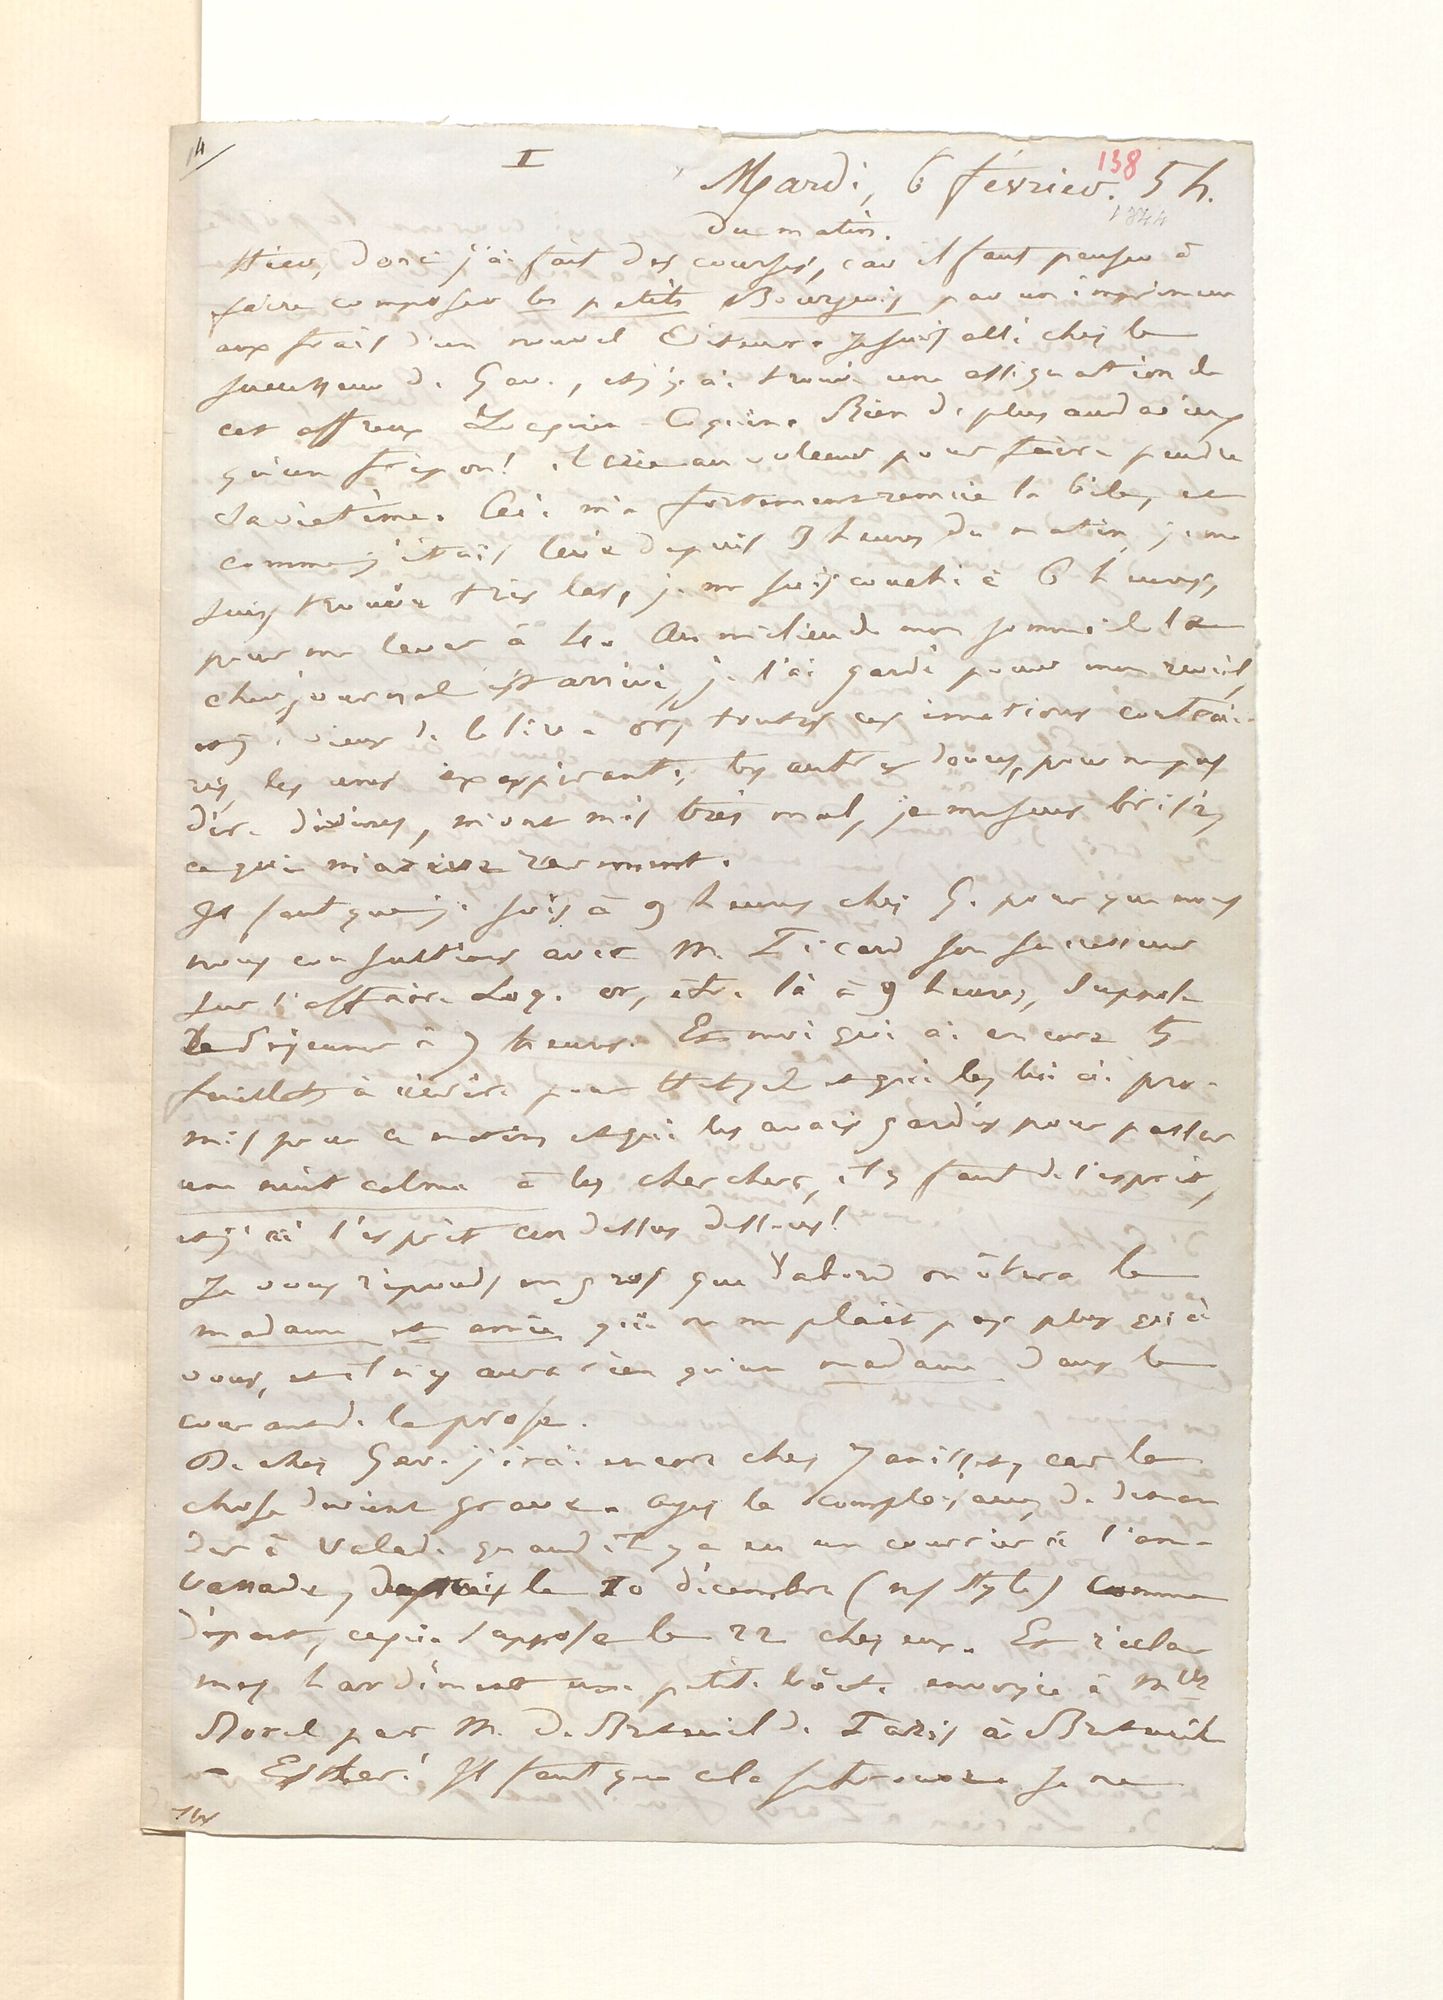 14/
I
138
Mardi, 6 février. 5 h.
1844
du matin.
Hier, donc j'ai fait des courses, car il faut penser à
faire composer les petits Bourgeois par un imprimeur
aux frais d'un nouvel Editeur. Je suis allé chez le
successeur de Gav., et j'y ai trouvé une assignation de
cet affreux Locquin-Coquin. Rien de plus audacieux
qu'un fripon! il crie au voleur pour faire pendre
sa victime. Ceci m'a fortement remué la bile, et
comme j'étais levé depuis 3 heures du matin, je me
suis trouvé très las, je me suis couché à 6 heures,
pour me lever à 4. Au milieu de mon sommeil le
cher journal est arrivé, je l'ai gardé pour mon réveil,
et je viens de le lire. Or, toutes ces émotions contrai-
res, les unes exaspérantes, les autres douces, pour ne pas
dire divines, m'ont mis très mal, je me sens brisé,
ce qui m'arrive rarement.
Il faut que je sois à 9 heures chez G. pour que nous
nous consultions avec M. Picard son successeur
sur l'affaire Loq. or, être là à 9 heures, suppose
le déjeuner à 7 heures. Et moi qui ai encore 5
feuillets à écrire pour Hetzel et qui les lui ai pro-
mis pour ce matin et qui les avais gardés pour passer
une nuit calme à les chercher, il y faut de l'esprit,
et j'ai l'esprit cen dessus dessous!
Je vous réponds en gros que d'abord on ôtera le
madame et amie qui ne me plaît pas plus qu'à
vous, et il n'y aura rien qu'un madame dans le
courant de la prose.
De chez Gav. j'irai encore chez Janisset, car la
chose devient grave. Ayez la complaisance de deman
der à Valade quand il y a eu un courrier à l'am-
bassade, depuis le 10 décembre (n/ style) comme
départ, ce qui suppose le 22 chez eux. Et récla
mez hardiment une petite boîte envoyée à Mlle
Borel par M. de Breteuil de Paris à Breteuil
— Esther! Il faut que cela se trouve. Je ne